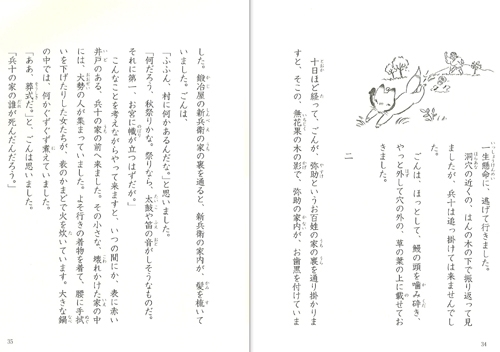 一生懸命に、逃げて行きました。
洞穴の近くの、はんの木の下で振り返って見
ましたが、兵十は追っ掛けては来ませんでし
た。
ごんは、ほっとして、鰻の頭を噛み砕き、
やっと外して穴の外の、草の葉の上に載せてお
きました。
二
十日ほど経って、ごんが、弥助というお百姓の家の裏を通り掛かりま
すと、そこの、無花果の木の影で、弥助の家内が、お歯黒を付けていま
34
した。鍛冶屋の新兵衛の家の裏を通ると、新兵衛の家内が、髪を梳いて
いました。ごんは、
「ふふん、村に何かあるんだな。」と思いました。
「何だろう、秋祭りかな。祭りなら、太鼓や笛の音がしそうなものだ。
それに第一、お宮に幟が立つはずだが。」
こんなことを考えながらやって来ますと、いつの間にか、表に赤い
井戸のある、兵十の家の前へ来ました。その小さな、壊れかけた家の中
には、大勢の人が集まっていました。よそ行きの着物を着て、腰に手拭
いを下げたりした女たちが、表のかまどで火を炊いています。大きな鍋
の中では、何かぐずぐず煮えていました。
「ああ、葬式だ。」と、ごんは思いました。
「兵十の家の誰が死んだんだろう。」
35